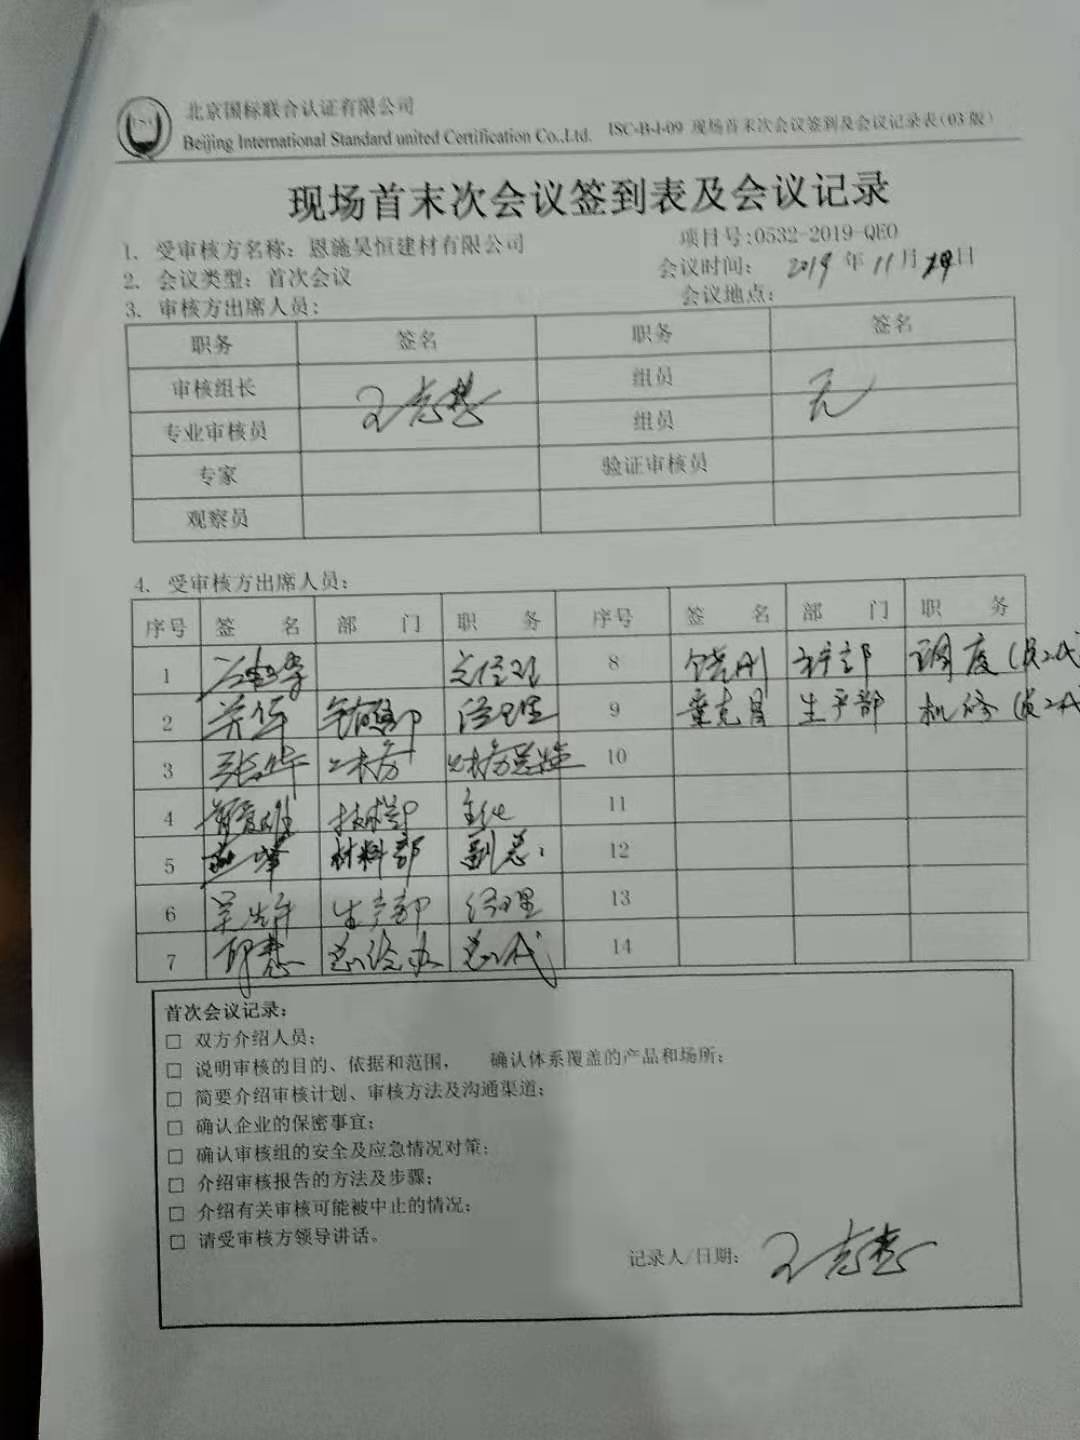 北京国标联合认证有限公司
Beijing International Standard united Certification Co.,Ltd. ISC-B-I-09 现场首末次会议签到及会议记录表(03版)
现场首末次会议签到表及会议记录
1. 受审核方名称：恩施昊恒建材有限公司 项目号:0532-2019-QEO
2. 会议类型：首次会议 会议时间： 2019 年 11 月 日
3. 审核方出席人员： 会议地点：
职务 签名 职务 签名
审核组长 王志慧 组员 无
专业审核员 组员
专家 验证审核员
观察员
4. 受审核方出席人员：
序号 签 名 部 门 职 务 序号 签 名 部 门 职 务
1 8 饶刚 调度
2 经理 9 童克昌 生产部 机修
3 张 财务 财务总监 10
4 技术部 主任 11
5 材料部 副总 12
6 生产部 经理 13
7 邱慧 总经办 14
首次会议记录：
□ 双方介绍人员；
□ 说明审核的目的、依据和范围， 确认体系覆盖的产品和场所；
□ 简要介绍审核计划、审核方法及沟通渠道；
□ 确认企业的保密事宜；
□ 确认审核组的安全及应急情况对策；
□ 介绍审核报告的方法及步骤；
□ 介绍有关审核可能被中止的情况；
□ 请受审核方领导讲话。
记录人/日期： 王志慧